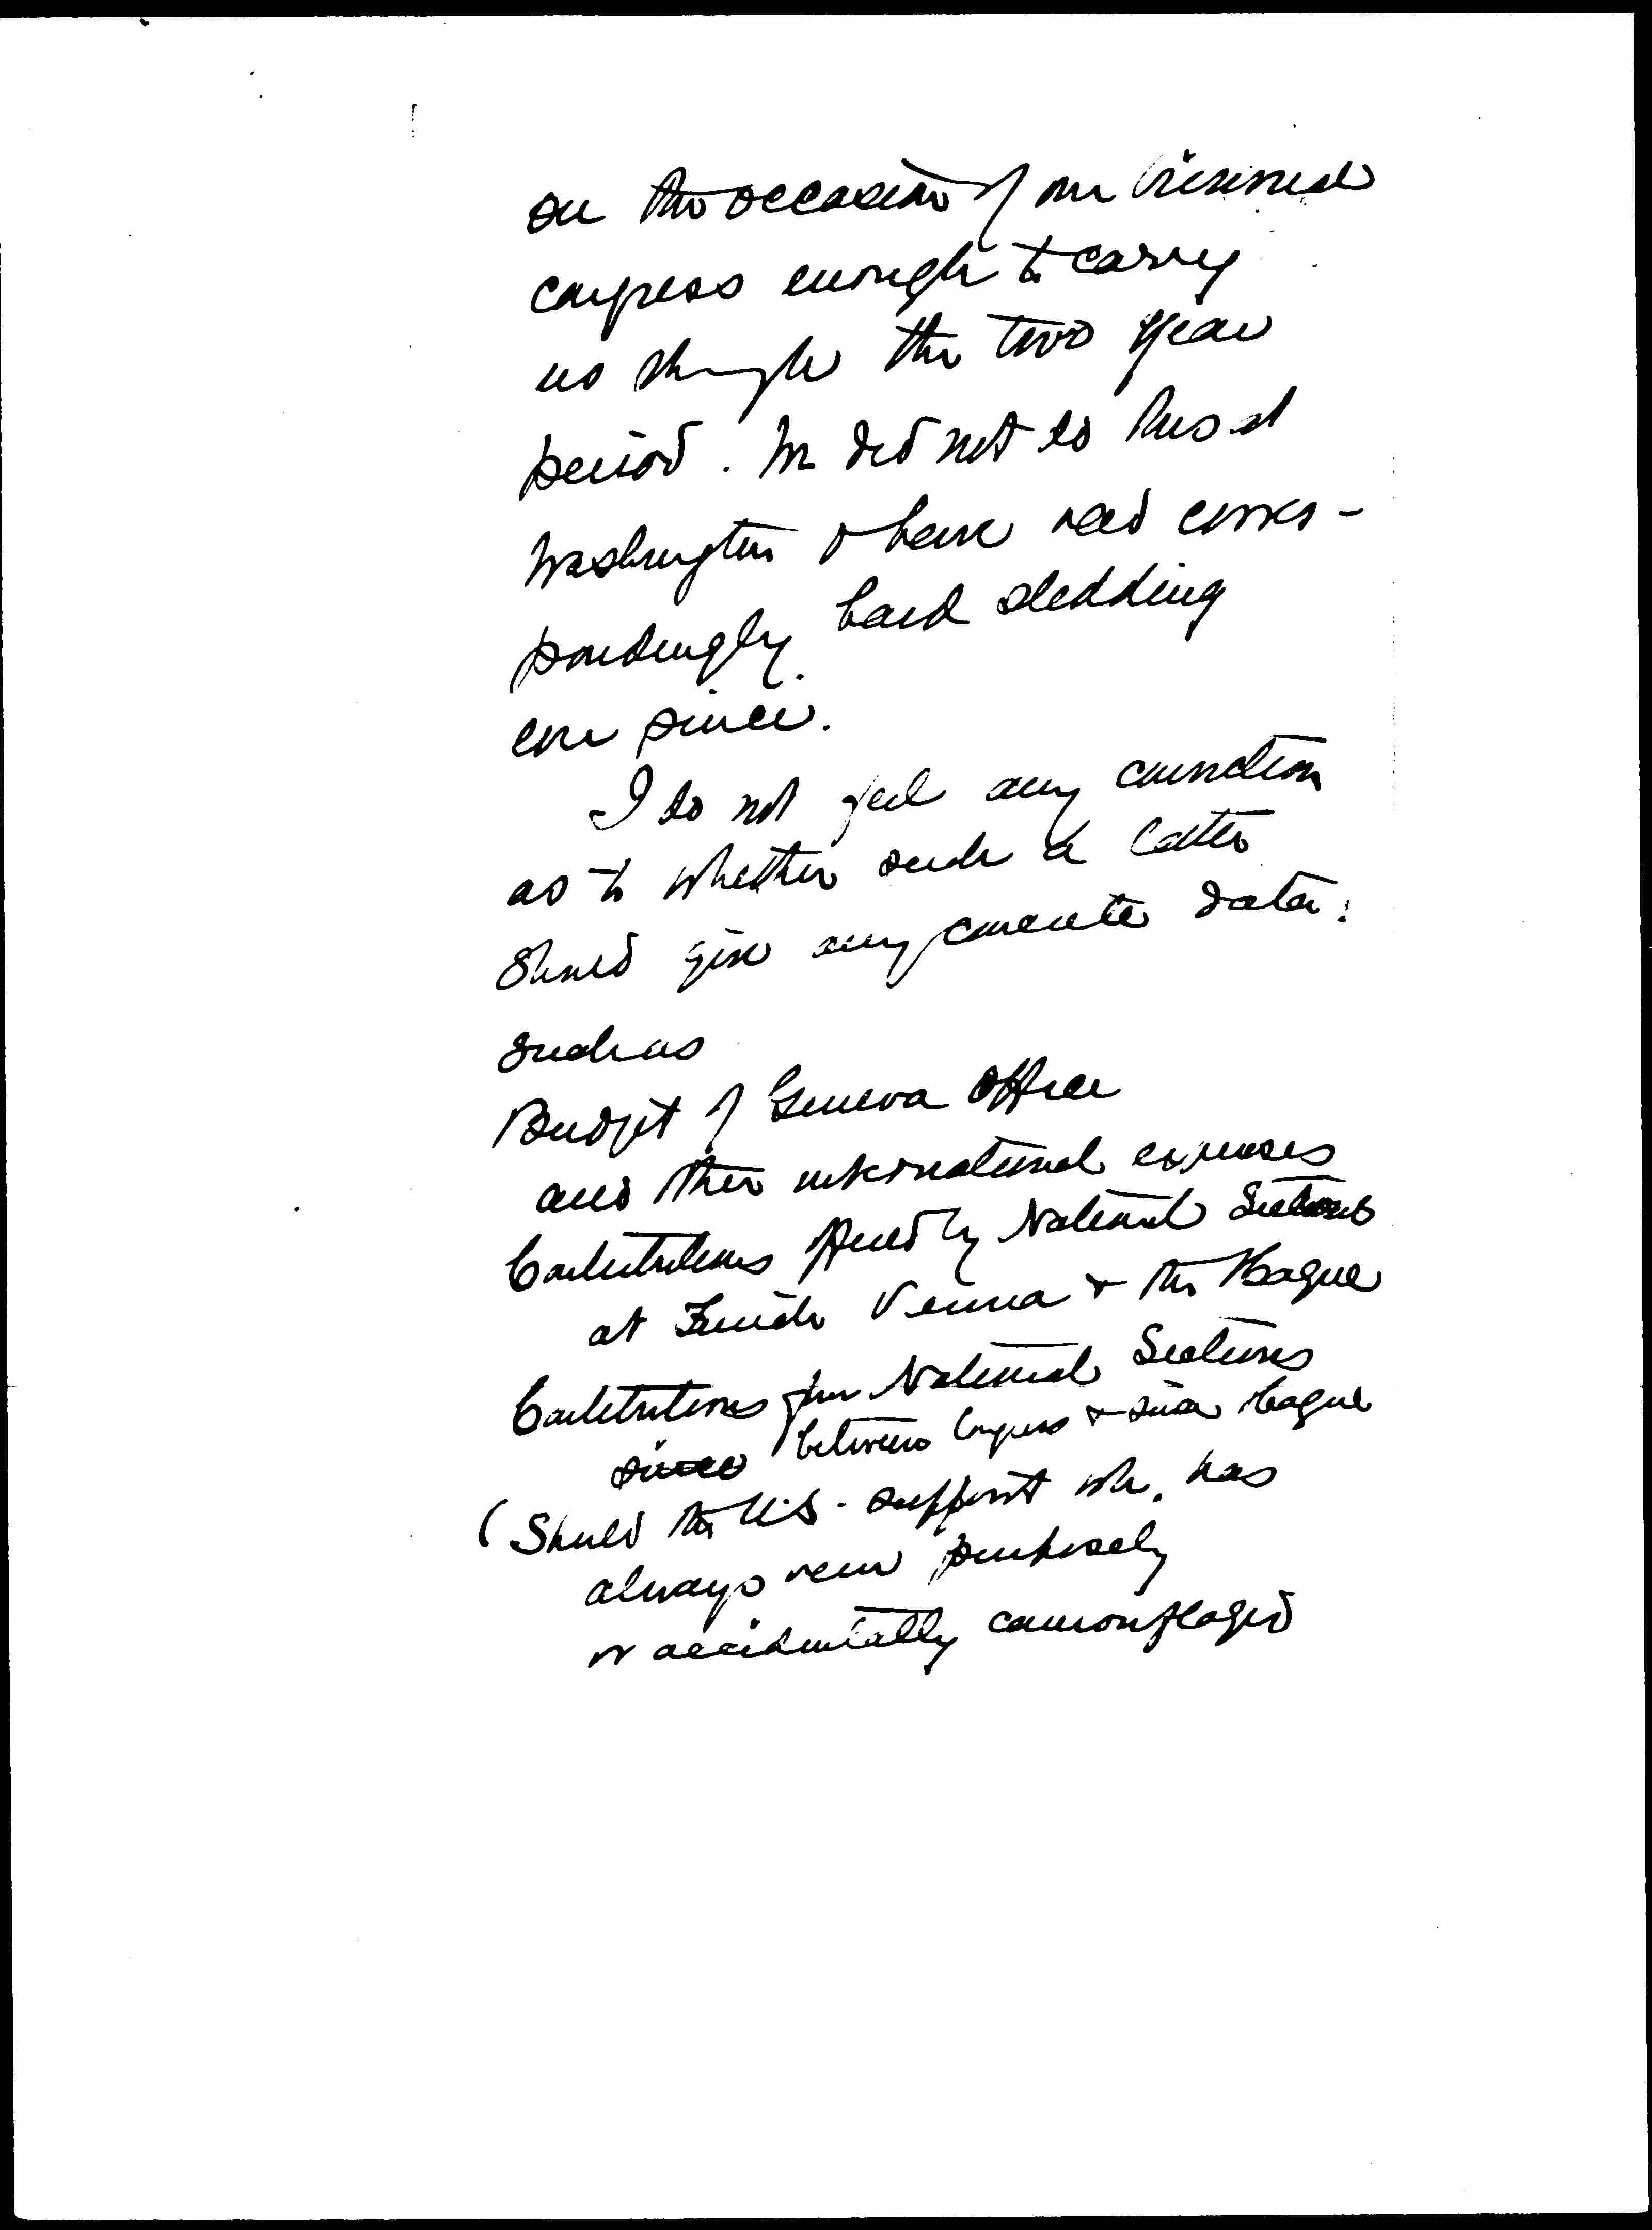 on the occasion of our biennial
congress enough to carry
us through the two year
period. We did not do this at
Washington & have had corres-
pondingly hard sledding
ever since.
I do not feel any conviction
as to whether such a letter
should give any concrete data:
such as
Budget of Geneva Office
and other international expenses
Contributions by National Sections
at Zurich Vienna & the Hague
Contributions from National Sections
since between Congress & since Hague
(Should the U.S. support wh. has
always been purposely
or accidentally camouflaged